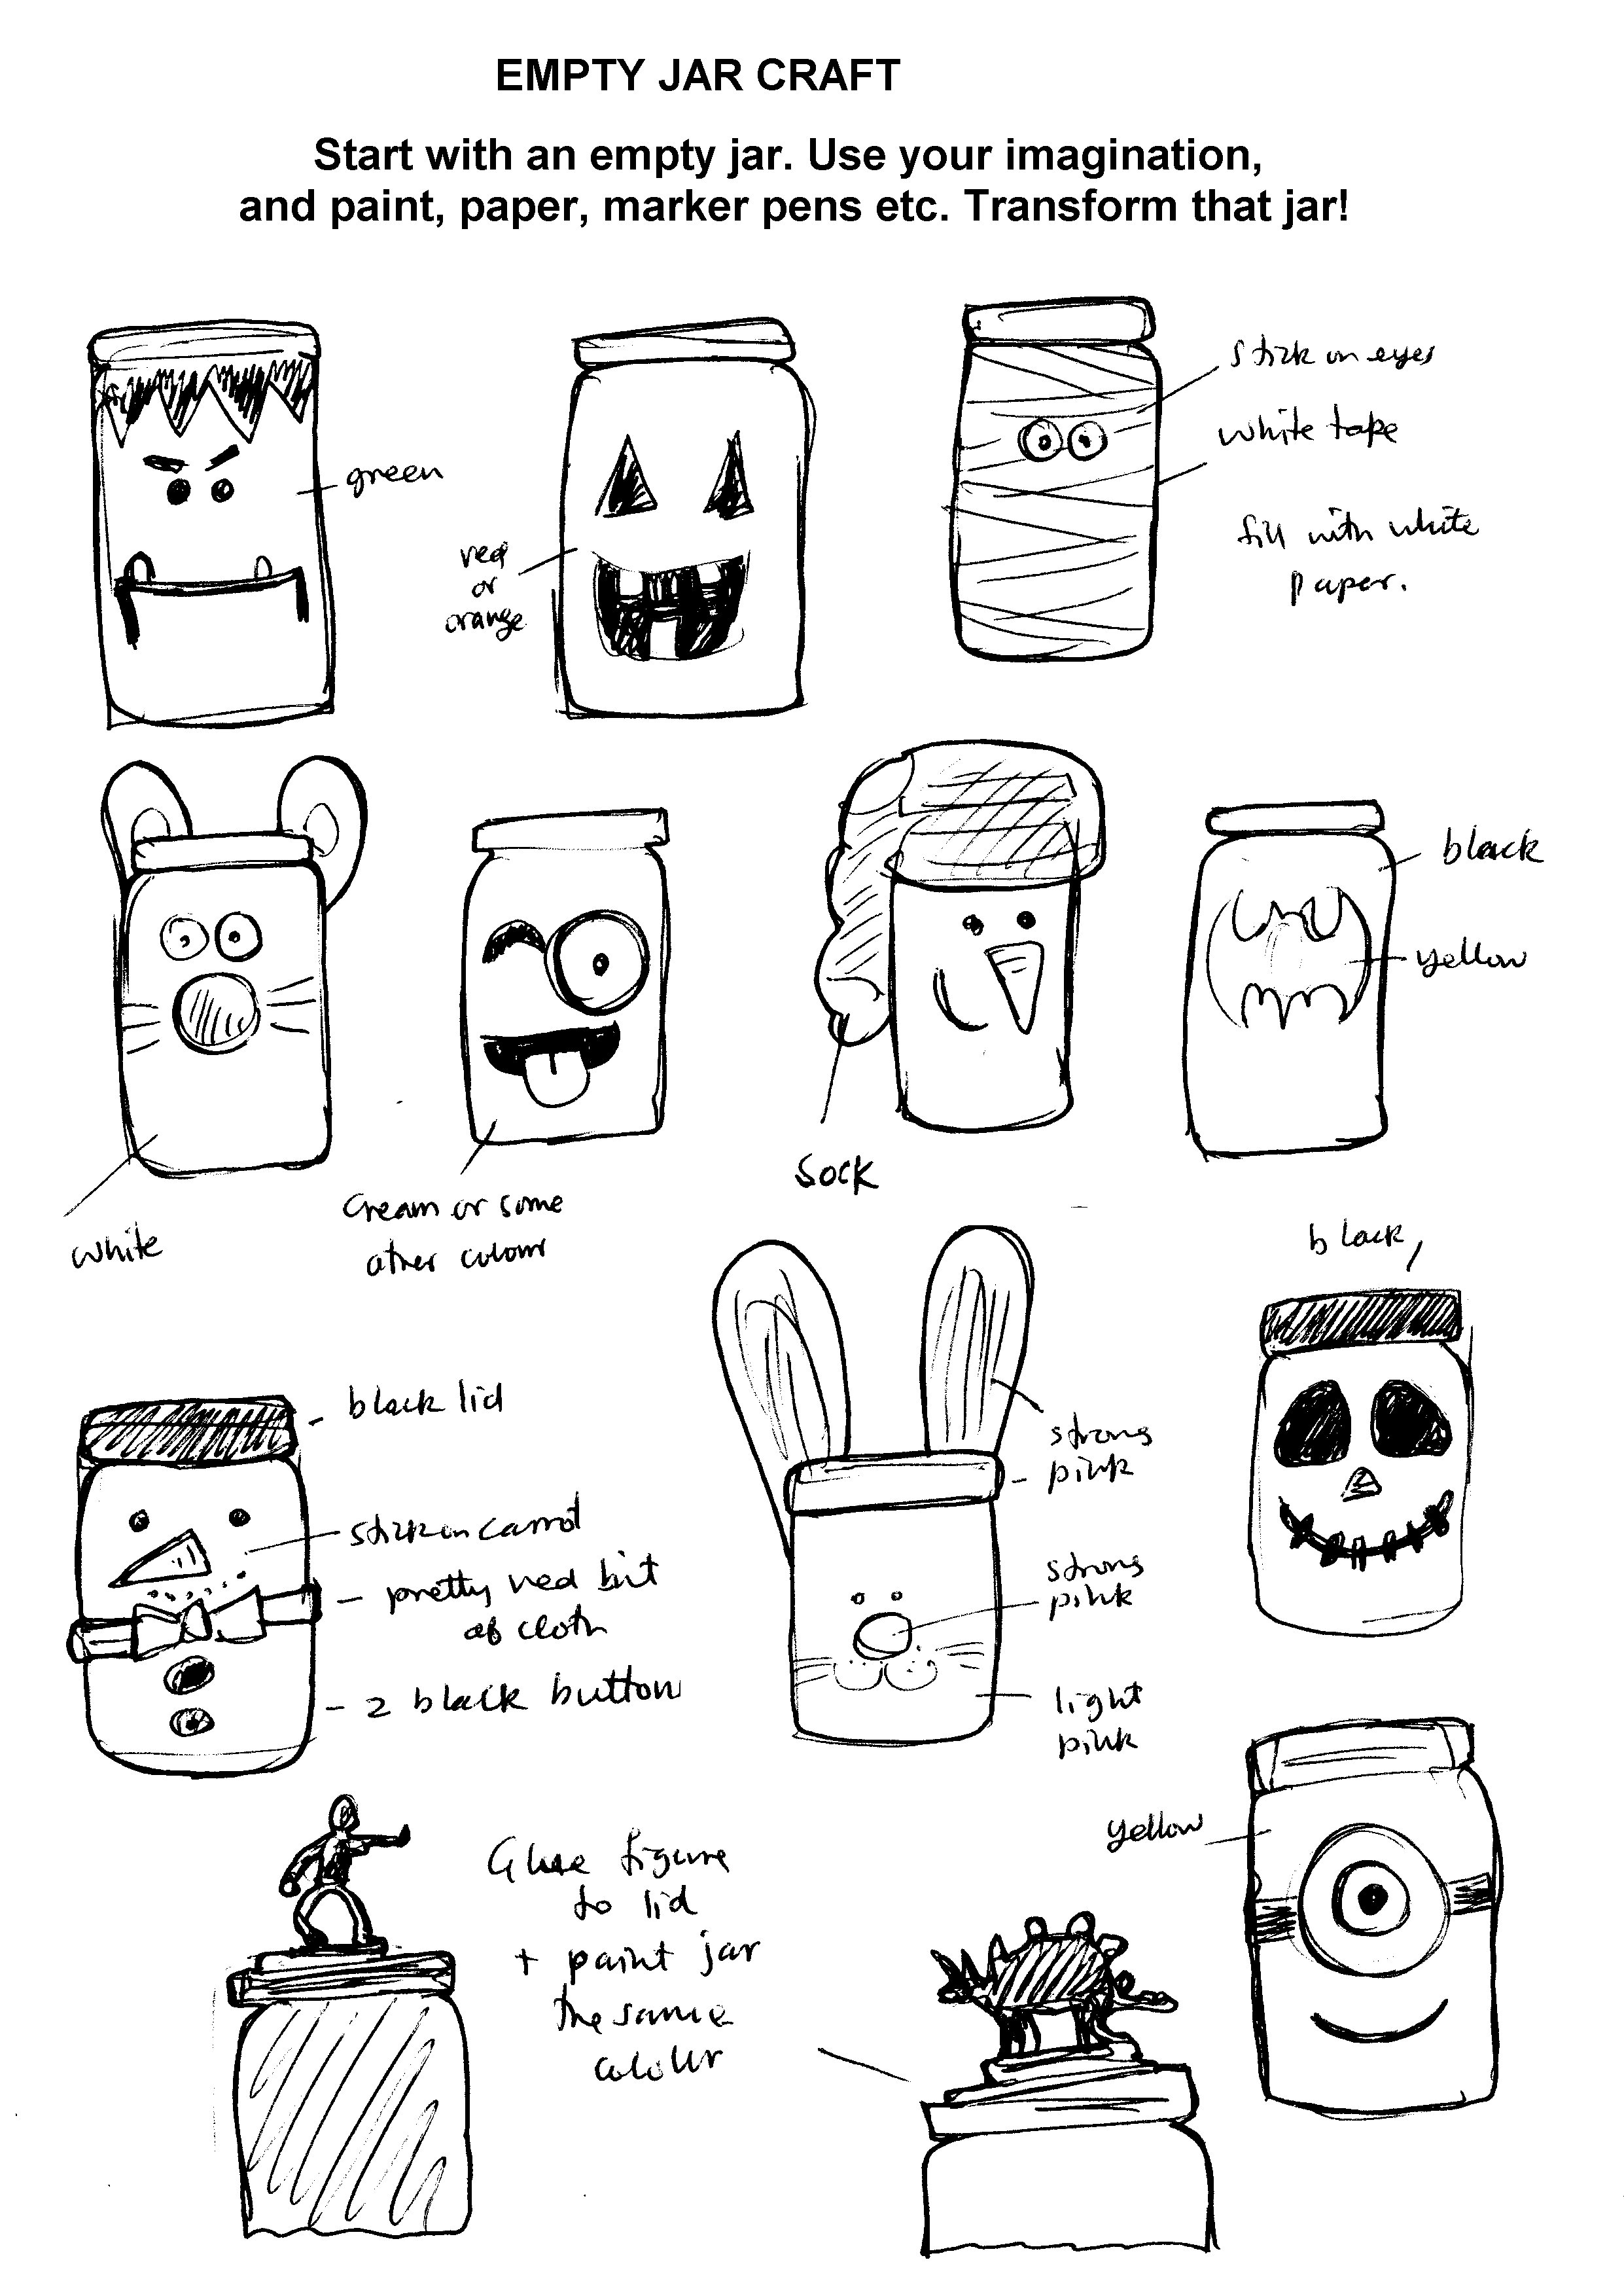 EMPTY JAR CRAFT
Start with an empty jar. Use your imagination,
and paint, paper, marker pens etc. Transform that jar!
green
red
or
orange
stick on eyes
white tape
fill with white
paper.
white
cream or some
other colour
sock
black
yellow
black lid
stick on carrot
pretty red bit
of cloth
2 black button
strong
pink
strong
pink
light
pink
black,
Glue figure
to lid
+ paint jar
the same
colour
yellow